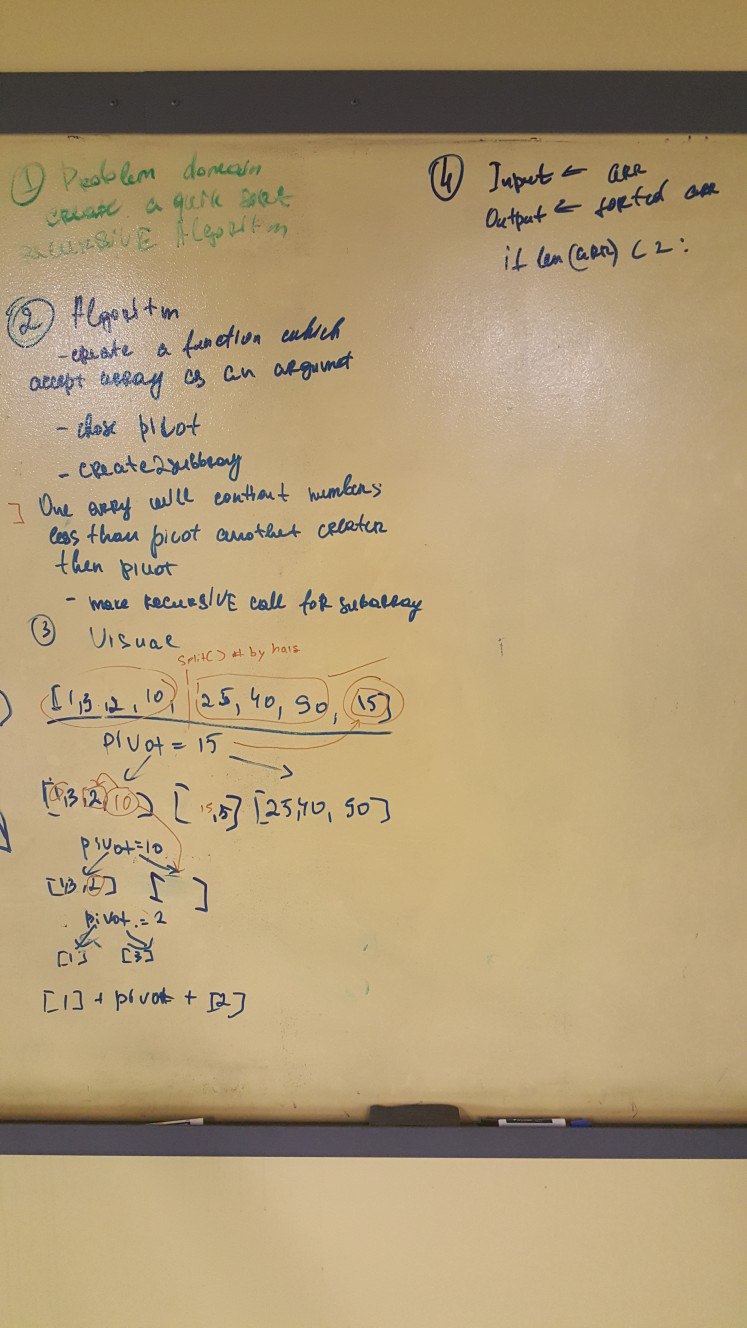 ① Problem domain
create a quik sort
recursive Algoritm
② Algoritm
- create a function which
accept array as an argumet
- chose pivot
- create 2 subbray
One array will contiant numbers
less than pivot another creater
then pivot
- make recursive call for subarray
③ Visual
split() # by hals
[1,3,2,10, 25, 40, 90, 15]
pivot = 15
[1,3,2,10] [15,5] [25,40, 90]
pivot=10
[1,3,2] [ ]
pivot = 2
[1] [3]
[1] + pivot + [2]
④ Input ← arr
Output ← sorted arr
if len(arr) < 2: